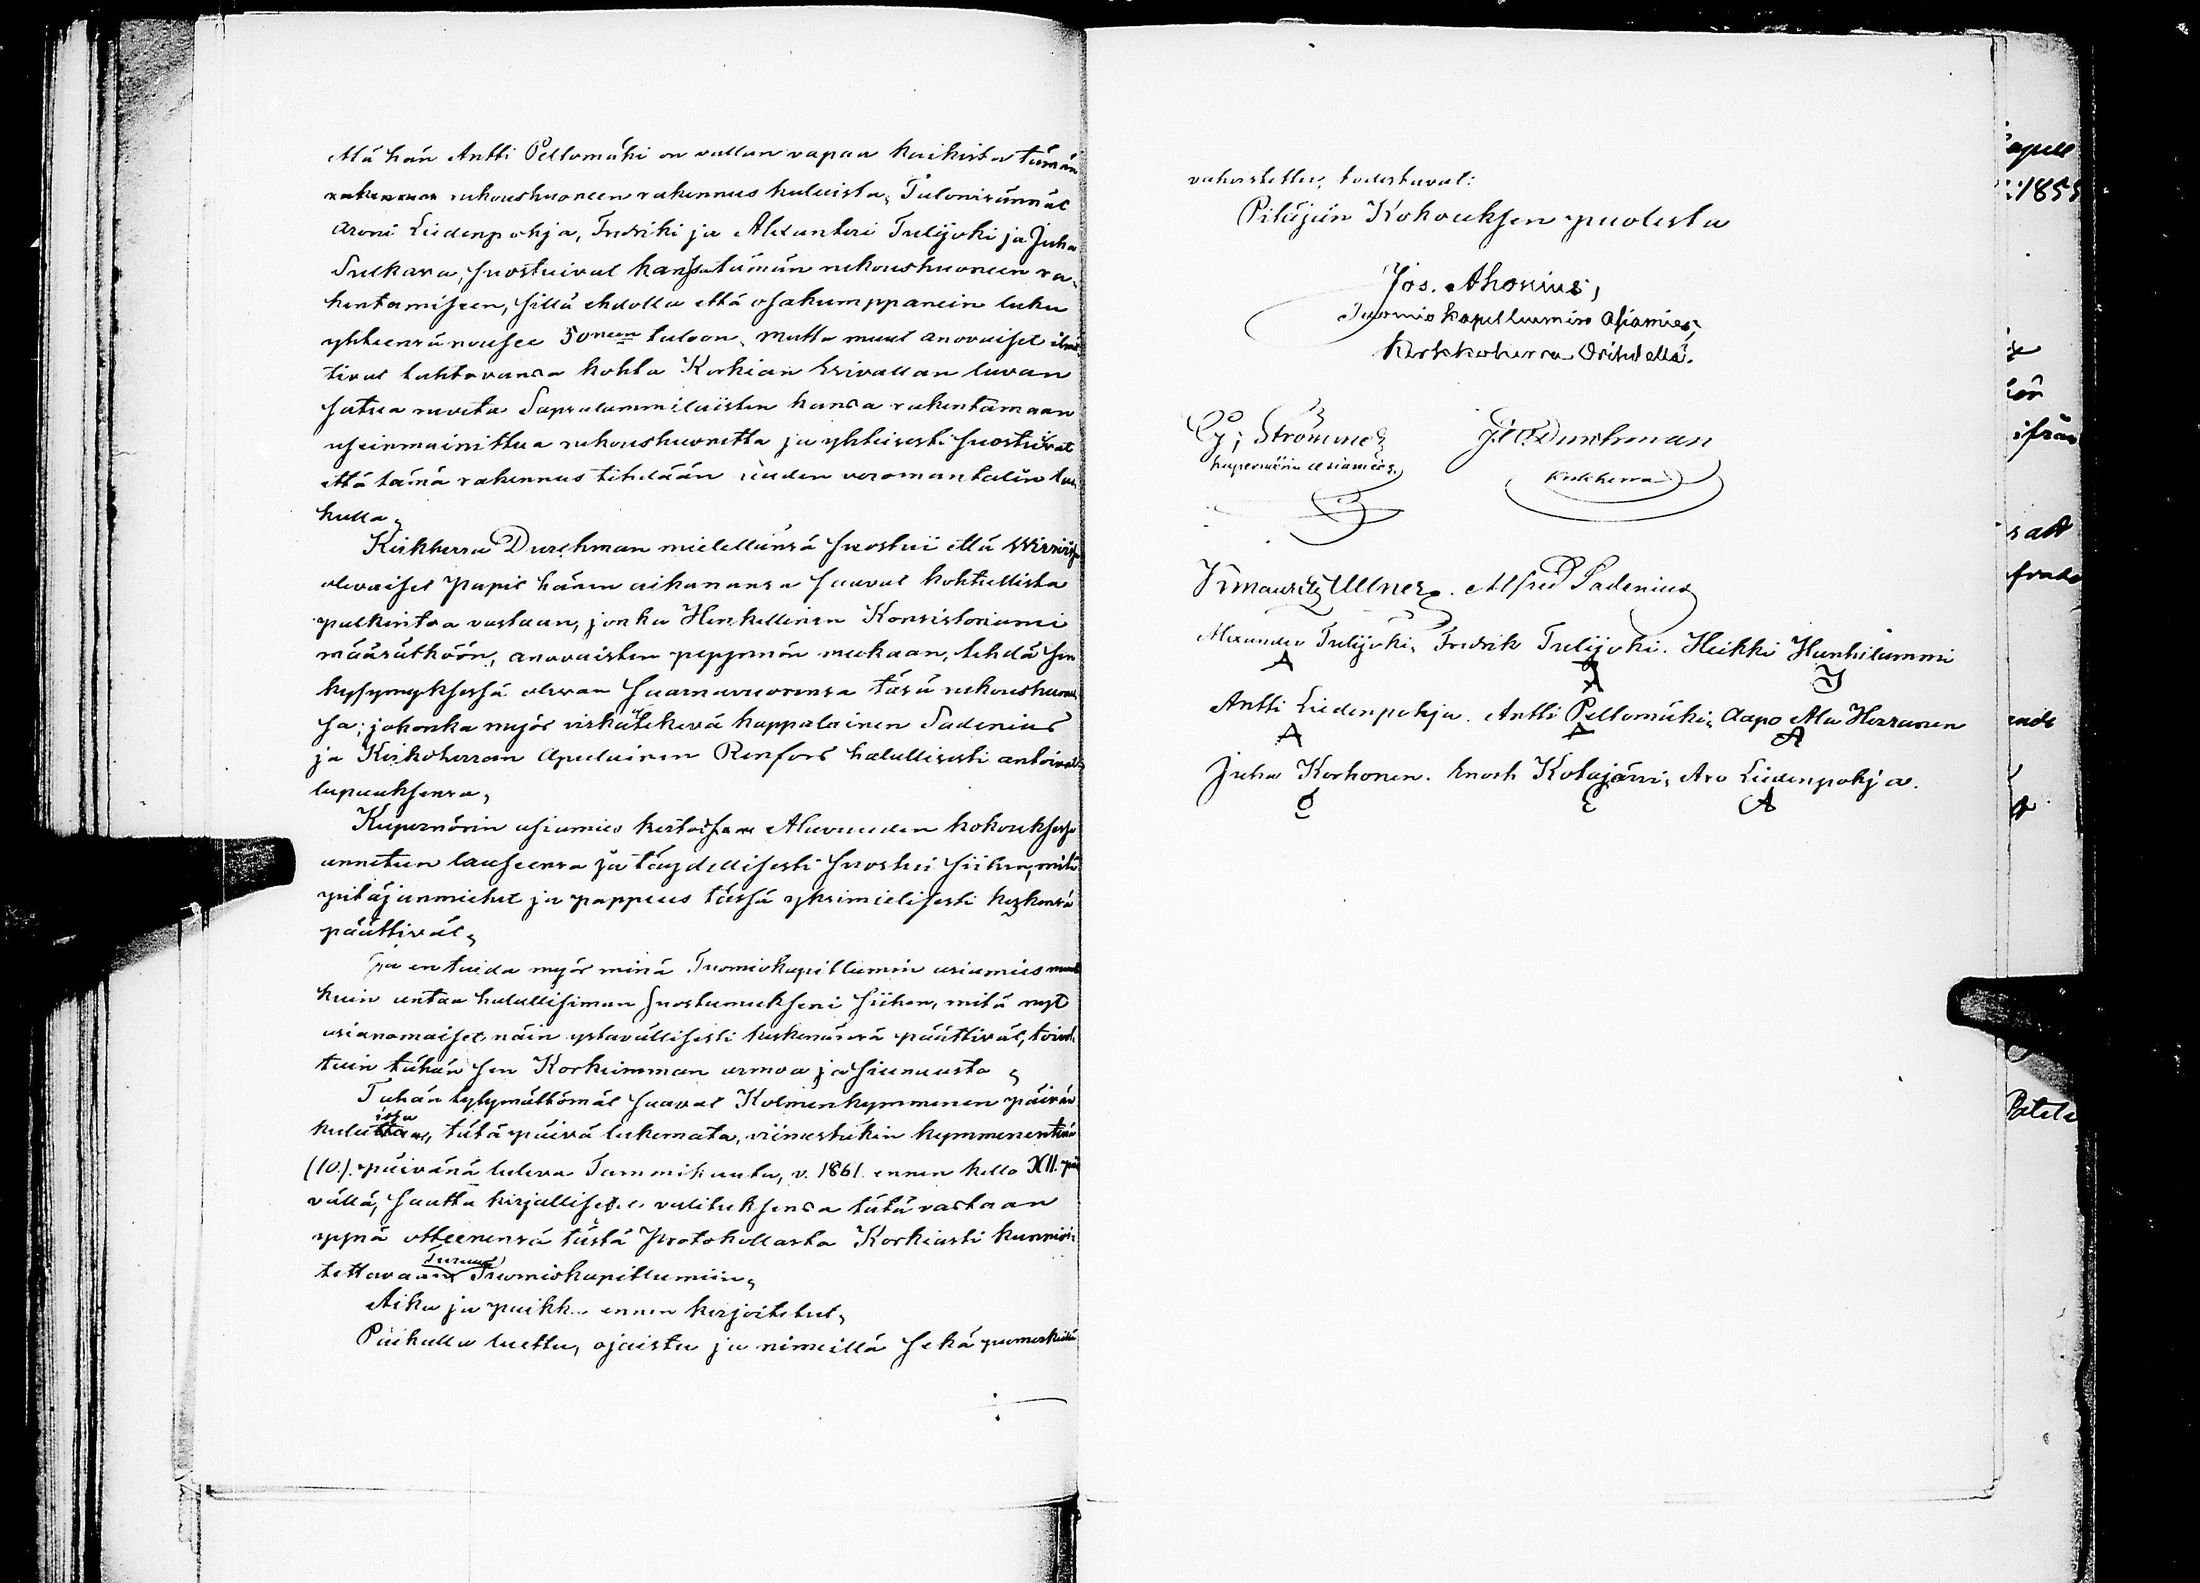 että hän Antti Peltomäki on vallan vapaa kaikista tämän
rukoushuoneen rakennus kuluista, Talonisännät
Aroni Liedenpohja, Fredriki ja Alexanteri Tulijoki ja Juha
Sulkava, suostuivat kanssa tämän rukoushuoneen ra-
kentamiseen, sillä ehdolla että osakumppanein luku
yhteensä nousee 50neen taloon, mutta muut anovaiset ilmoit
tivat tahtovansa kohta Korkian Esivallan luvan
satua ruveta Sapsalammilaisten kansa rakentamaan
useinmainittua rukoushuonetta ja yhteisesti suostuivat
että tämä rakennus tehdään uuden veromantalin
kulla,
Kirkherra Durchman mielellänsä suostui että Wirroissa
olevaiset Papit hänen aikanansa saavat kohtullista
palkintoa vastaan, jonka Henkellinen Konsistoriumi
määrätköön, anovaisten pyynnön mukaan, tehdä sen
kysymyksessä olevan saarnavuoronsa täsä rukoushuonee
sa; johonka myös virkatekevä kappalainen Sadenius
ja Kirkoherran Apulainen Renfors halullisesti antoivat
lupauksensa,
Kupernörin asiamies kertoi Alavuuden kokouksessa
annetun lauseensa ja täydellisesti suostui siihen, mitä
pitäjänmiehet ja pappeus tässä yksimielisesti keskensä
päättivät,
Ja en taida myös minä Tuomiokapitlumin asiamies muuta
kuin antaa halullisiman suostumukseni siihen, mitä nyt
asianomaiset näin ystavällisesti keskenänsä päättivät, toivot
tain tähän sen Korkeimman armoa ja siunausta,
Tähän tytymättömät saavat Kolmenkymmenen päivän
issa
kulu, tätä päivä lukemata, viimestäkin kymmenentenä
(10.) päivänä tuleva Tammikuuta, v. 1861. ennen kello XII. päi
vällä, saatta kirjallisesti valituksensa tätä vastaan
ynnä otteenensä tästä Protokollasta Korkiasti kunnioi
Turuun
tettavaan Tuomiokapitlumiin,
Aika ja paikka ennen kirjoitetut,
Paikalla luettu, ojaistu ja nimeillä sekä puumerkeillä
vahvistettu, todistavat:
Pitäjän Kokouksen puolesta
Jos. Ahonius,
Tuomiokapitlumin Asiamies,
Kirkkoherra Orihvedellä.
Strömmer
kupernörin asiamies.
Durchman
Kirkherra
Mauritz Ullner. Alfred Sadenius
Alexander Tulijoki, Fredrik Tulijoki. Heikki Hanhilammi
A A
Antti Liedenpohja. Antti Peltomäki, Aapo Ala Herranen
A A A
Juha Korhonen. Enoch Kotajärvi, Aro Liedenpohja.
E A